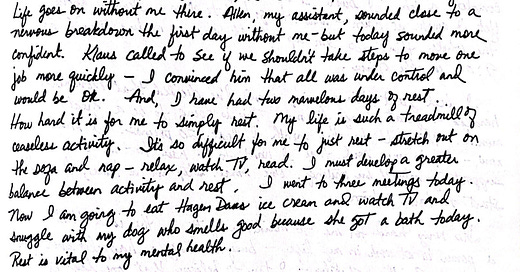 Life goes on without me there. Allen, my assistant, sounded close to a
nervous breakdown the first day without me - but today sounded more
confident. Klaus called to see if we shouldn't take steps to move one
job more quickly - I convinced him that all was under control and
would be OK. And, I have had two marvelous days of rest.
How hard it is for me to simply rest. My life is such a treadmill of
ceaseless activity. It's so difficult for me to just rest - stretch out on
the sofa and nap - relax, watch TV, read. I must develop a greater
balance between activity and rest. I went to three meetings today.
Now I am going to eat Hagen Dass ice cream and watch TV and
snuggle with my dog who smells good because she got a bath today.
Rest is vital to my mental health.